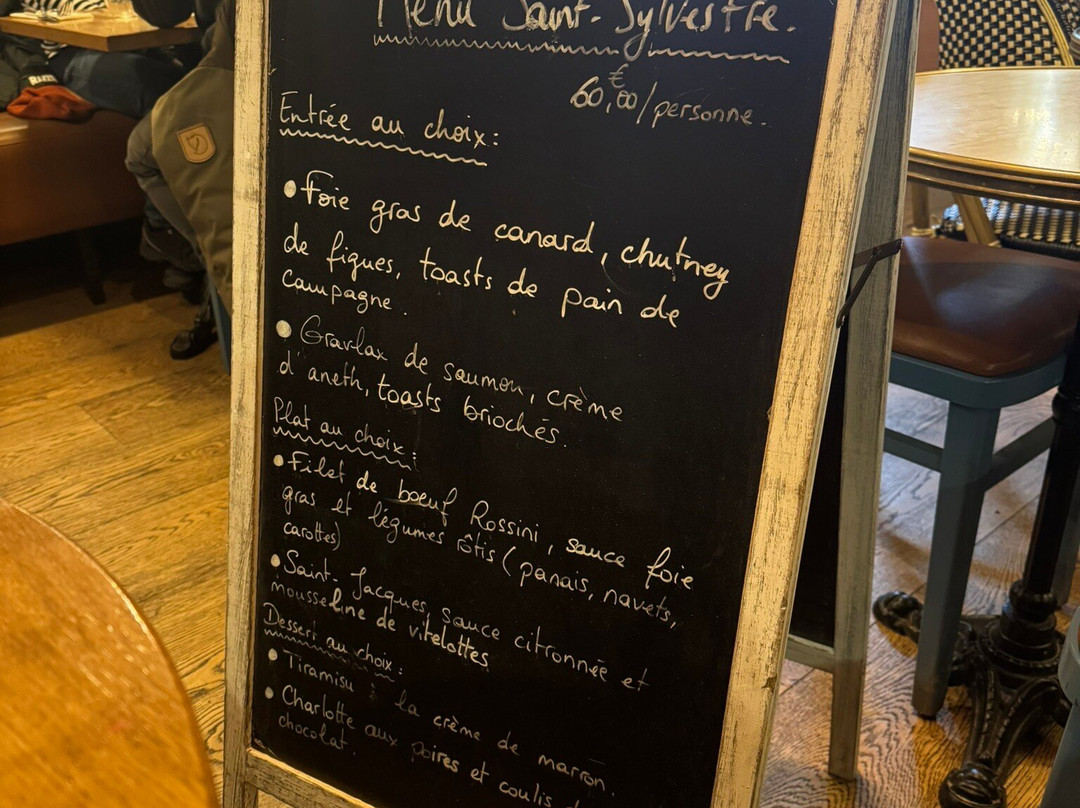 Menu Saint-Sylvestre.
60,€00/personne.
Entrée au choix:
• Foie gras de canard, chutney
de figues, toasts de pain de
campagne.
• Gravlax de saumon, crème
d'aneth, toasts briochés.
Plat au choix:
• Filet de boeuf Rossini, sauce foie
gras et légumes rôtis (panais, navets,
carottes)
• Saint-Jacques, sauce citronnée et
mousseline de vitelottes
Dessert au choix:
• Tiramisu à la crème de marron.
• Charlotte aux poires et coulis
chocolat.